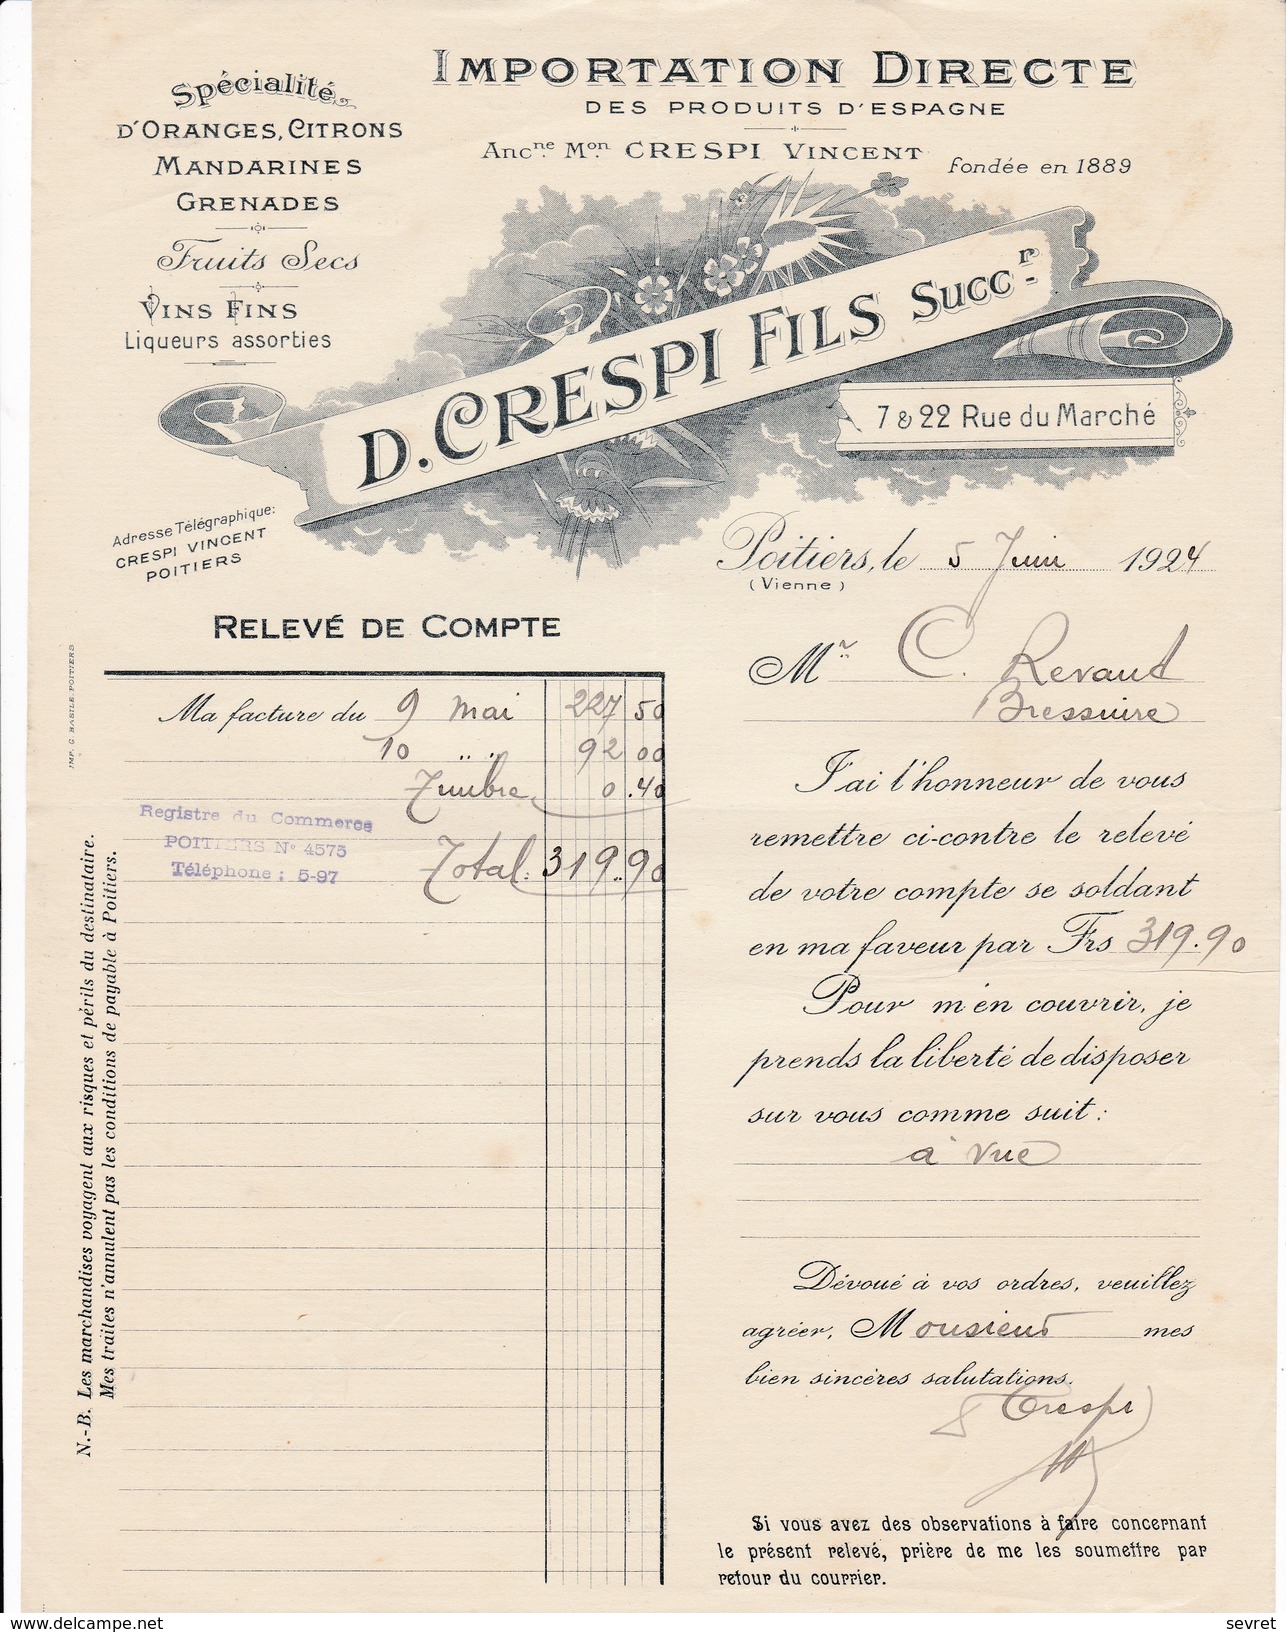 Spécialité
D'ORANGES, CITRONS
MANDARINES
GRENADES
Fruits Secs
VINS FINS
Liqueurs assorties
IMPORTATION DIRECTE
DES PRODUITS D'ESPAGNE
Anc.ne M.on CRESPI VINCENT
fondée en 1889
D. CRESPI FILS Succ.r
7 & 22 Rue du Marché
Adresse Télégraphique:
CRESPI VINCENT
POITIERS
Poitiers, le 5 Juin 1924
(Vienne)
RELEVÉ DE COMPTE
Mr C. Revaud
Bressuire
Ma facture du 9 mai 227 50
10 " " 92 00
Timbre 0.40
Total: 319.90
Registre du Commerce
POITIERS No 4575
Téléphone : 5-97
J'ai l'honneur de vous
remettre ci-contre le relevé
de votre compte se soldant
en ma faveur par Frs 319.90
Pour m'en couvrir, je
prends la liberté de disposer
sur vous comme suit :
à vue
Dévoué à vos ordres, veuillez
agréer, Monsieur mes
bien sincères salutations.
Crespi
Si vous avez des observations à faire concernant
le présent relevé, prière de me les soumettre par
retour du courrier.
IMP. G. BASILE-POITIERS
N.-B. Les marchandises voyagent aux risques et périls du destinataire.
Mes traites n'annulent pas les conditions de payable à Poitiers.
© delcampe.net
sevret